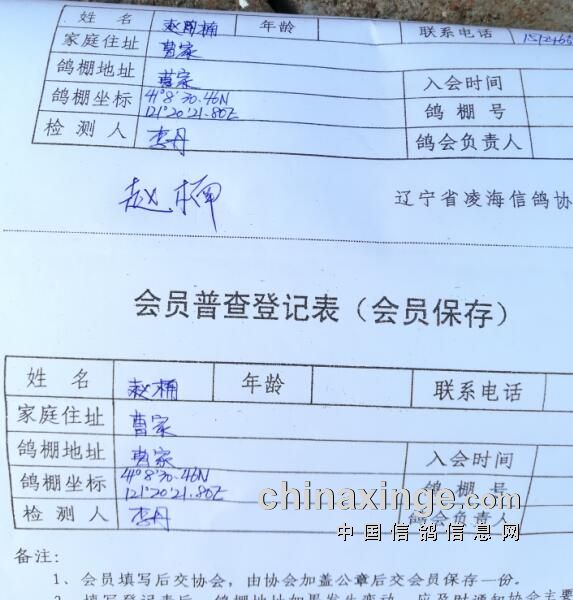 姓名 赵桷 年龄 联系电话
家庭住址 曹家
鸽棚地址 曹家 入会时间
鸽棚坐标 41°8'30.46N 121°20'21.80E 鸽棚号
检测人 李丹 鸽会负责人
赵桷 辽宁省凌海信鸽协
会员普查登记表（会员保存）
姓名 赵桷 年龄 联系电话
家庭住址 曹家
鸽棚地址 曹家 入会时间
鸽棚坐标 41°8'30.46N 121°20'21.80E 鸽棚号
检测人 李丹 鸽会负责人
chinaxinge.com
中国信鸽信息网
备注：
1、会员填写后交协会，由协会加盖公章后交会员保存一份。
2、填写登记表后，鸽棚地址如果发生变动，应及时通知协会主要